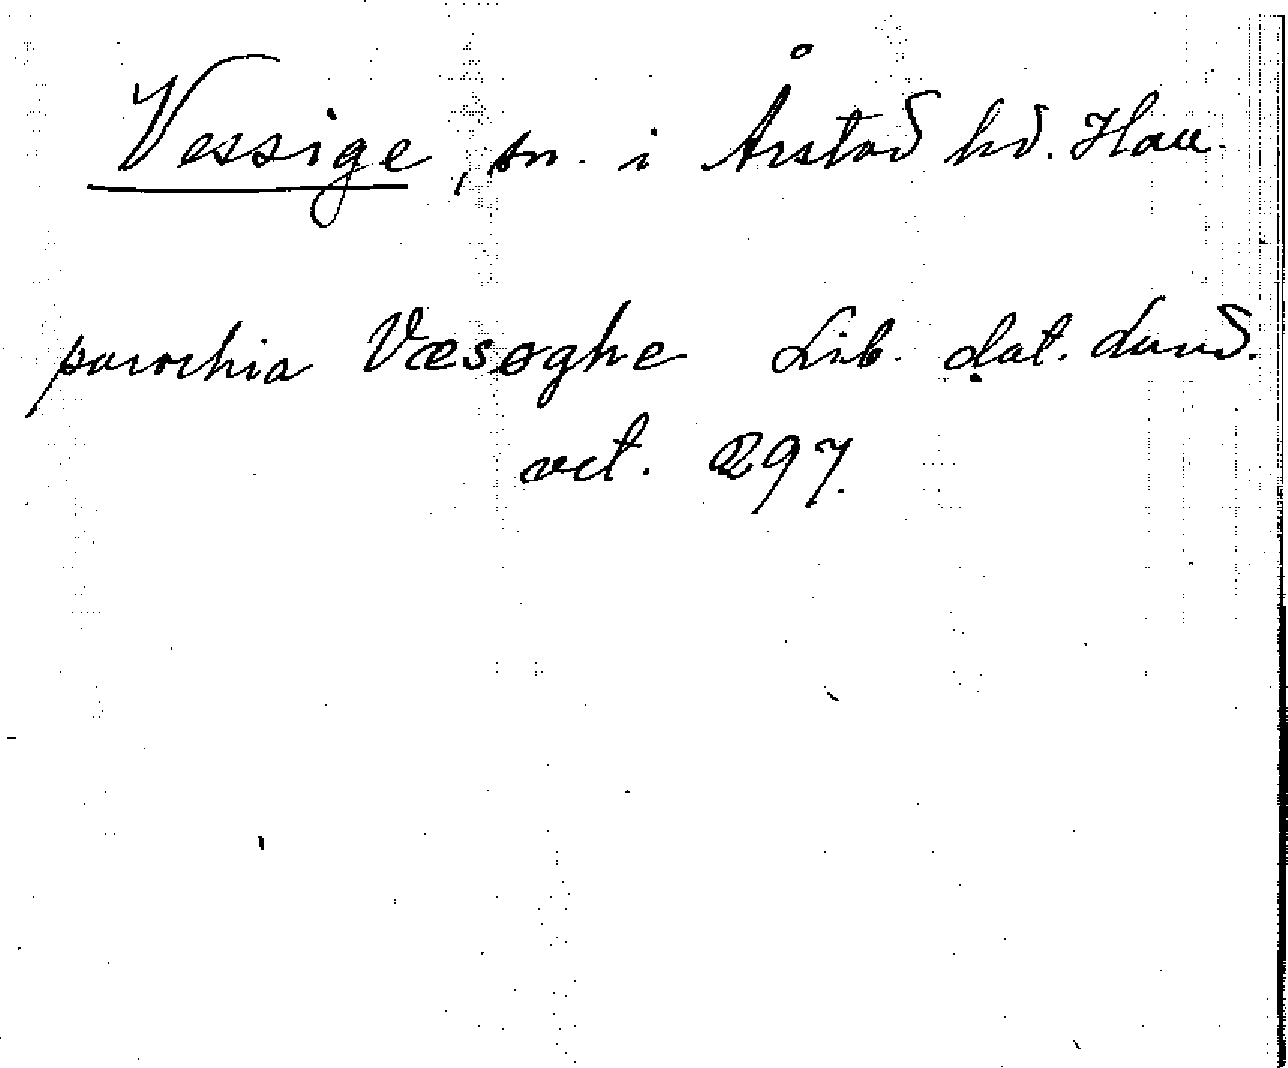 Vessige, sn. i Årstad hd. Hall.
parochia Væsøghe Lib. dat. Lund.
vet. 297.